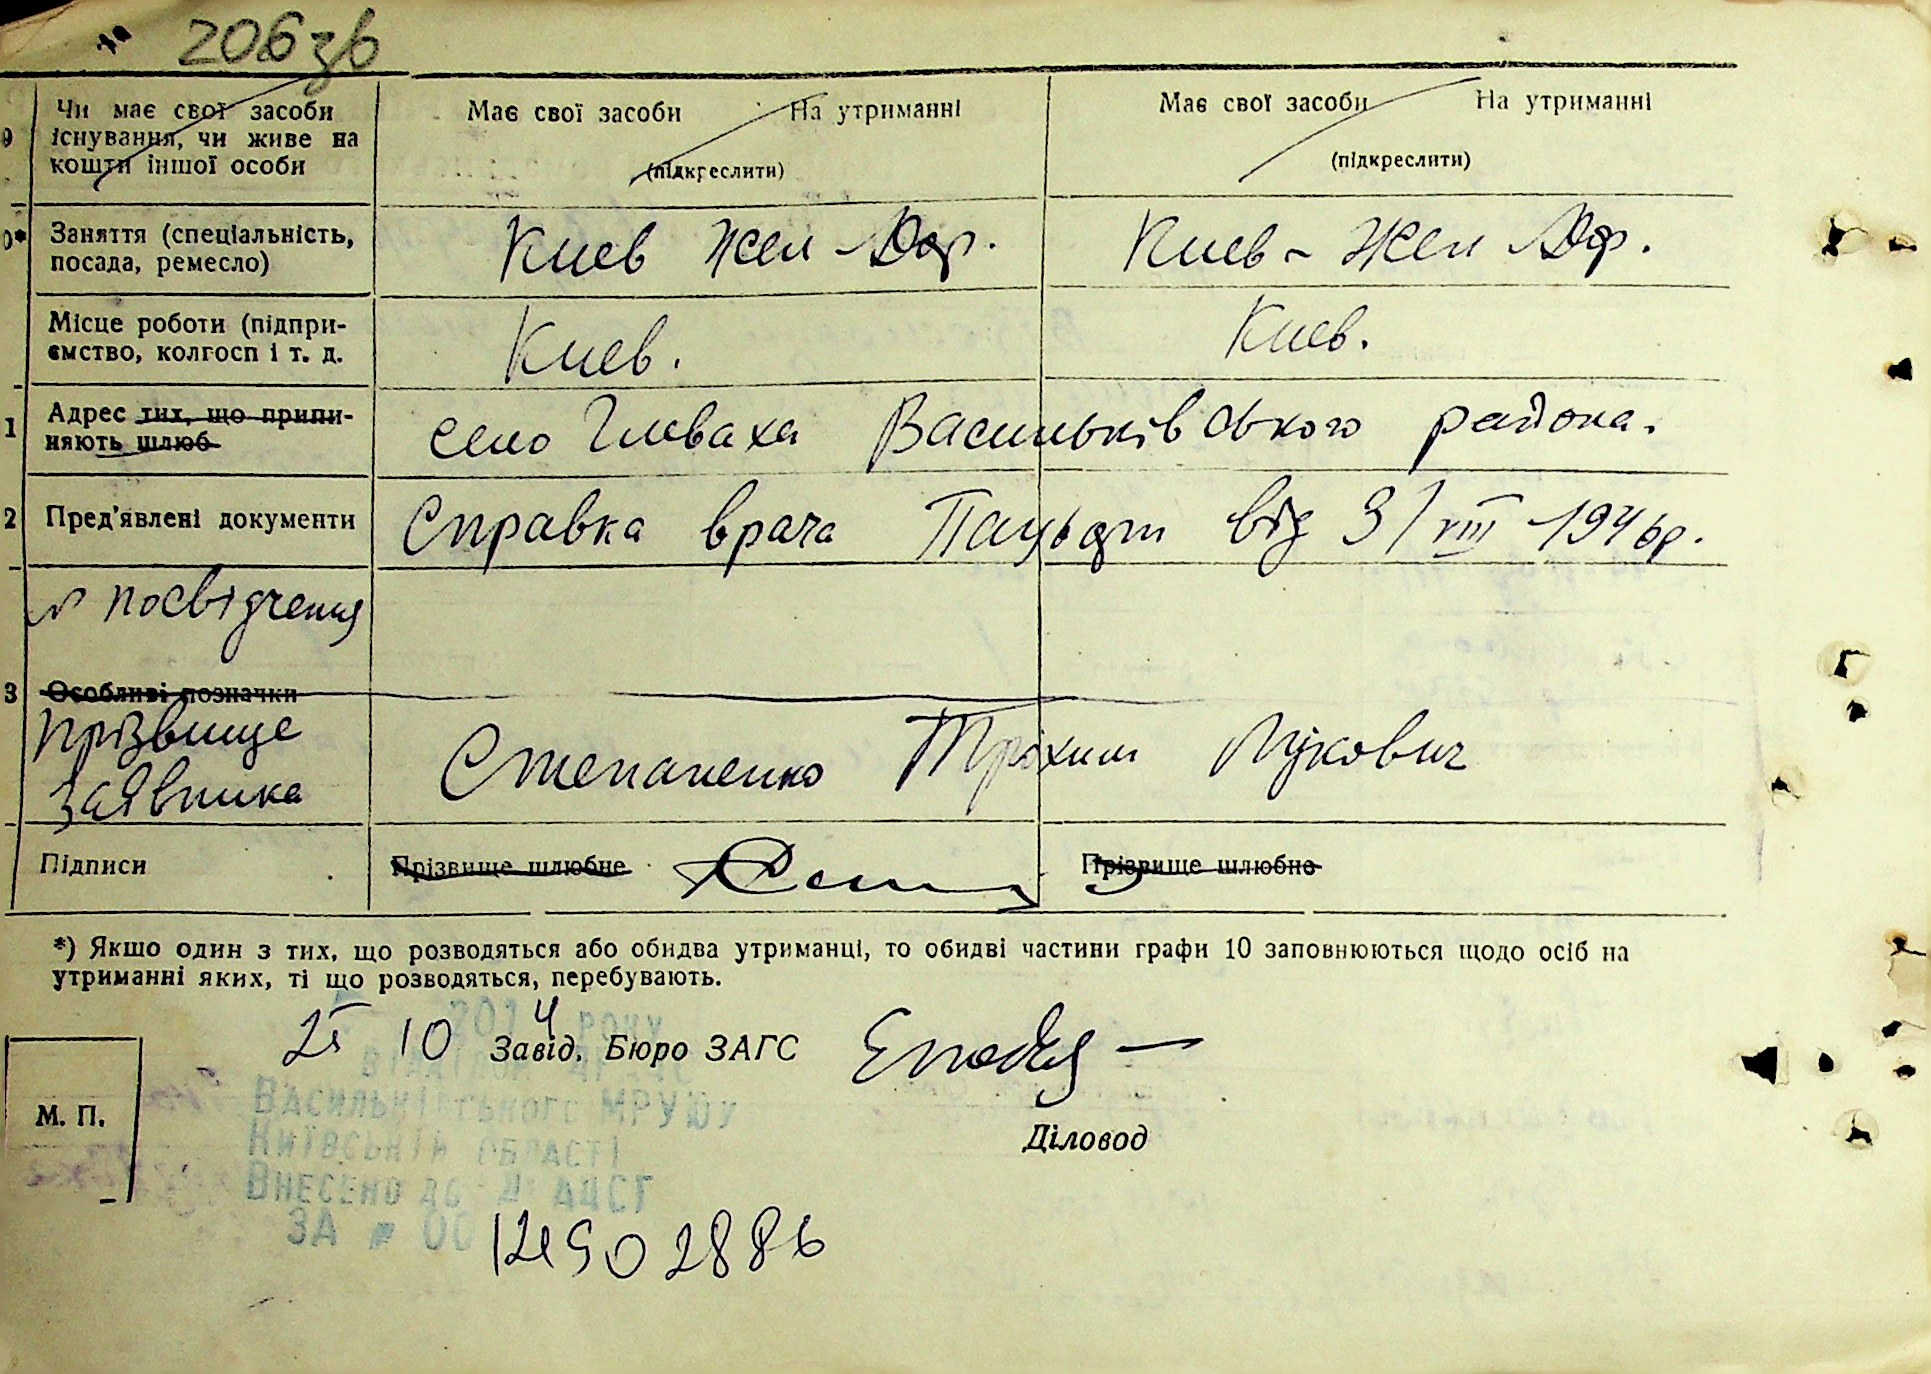 206 зв
9 Чи має свої засоби існування, чи живе на кошти іншої особи
Має свої засоби На утриманні
(підкреслити)
Має свої засоби На утриманні
(підкреслити)
0* Заняття (спеціальність, посада, ремесло)
Киев Жел Дор.
Киев - Жел Дор.
Місце роботи (підприємство, колгосп і т. д.
Киев.
Киев.
1 Адрес тих, що припиняють шлюб
село Глеваха Васильківського района.
2 Пред'явлені документи
Справка врача від 3/VIII - 1946р.
№ посвідчення
3 Особливі позначки
прізвище
заявника
Степаненко Трохим Лукович
Підписи
Прізвище шлюбне
Прізвище шлюбне
*) Якшо один з тих, що розводяться або обидва утриманці, то обидві частини графи 10 заповнюються щодо осіб на
утриманні яких, ті що розводяться, перебувають.
10 2014 РОКУ
Завід. Бюро ЗАГС
М. П.
ВАСИЛЬКІВСЬКОГО МРУЮ
КИЇВСЬКІЙ ОБЛАСТІ
Діловод
ВНЕСЕНО ДО ДРАЦСГ
ЗА № 00